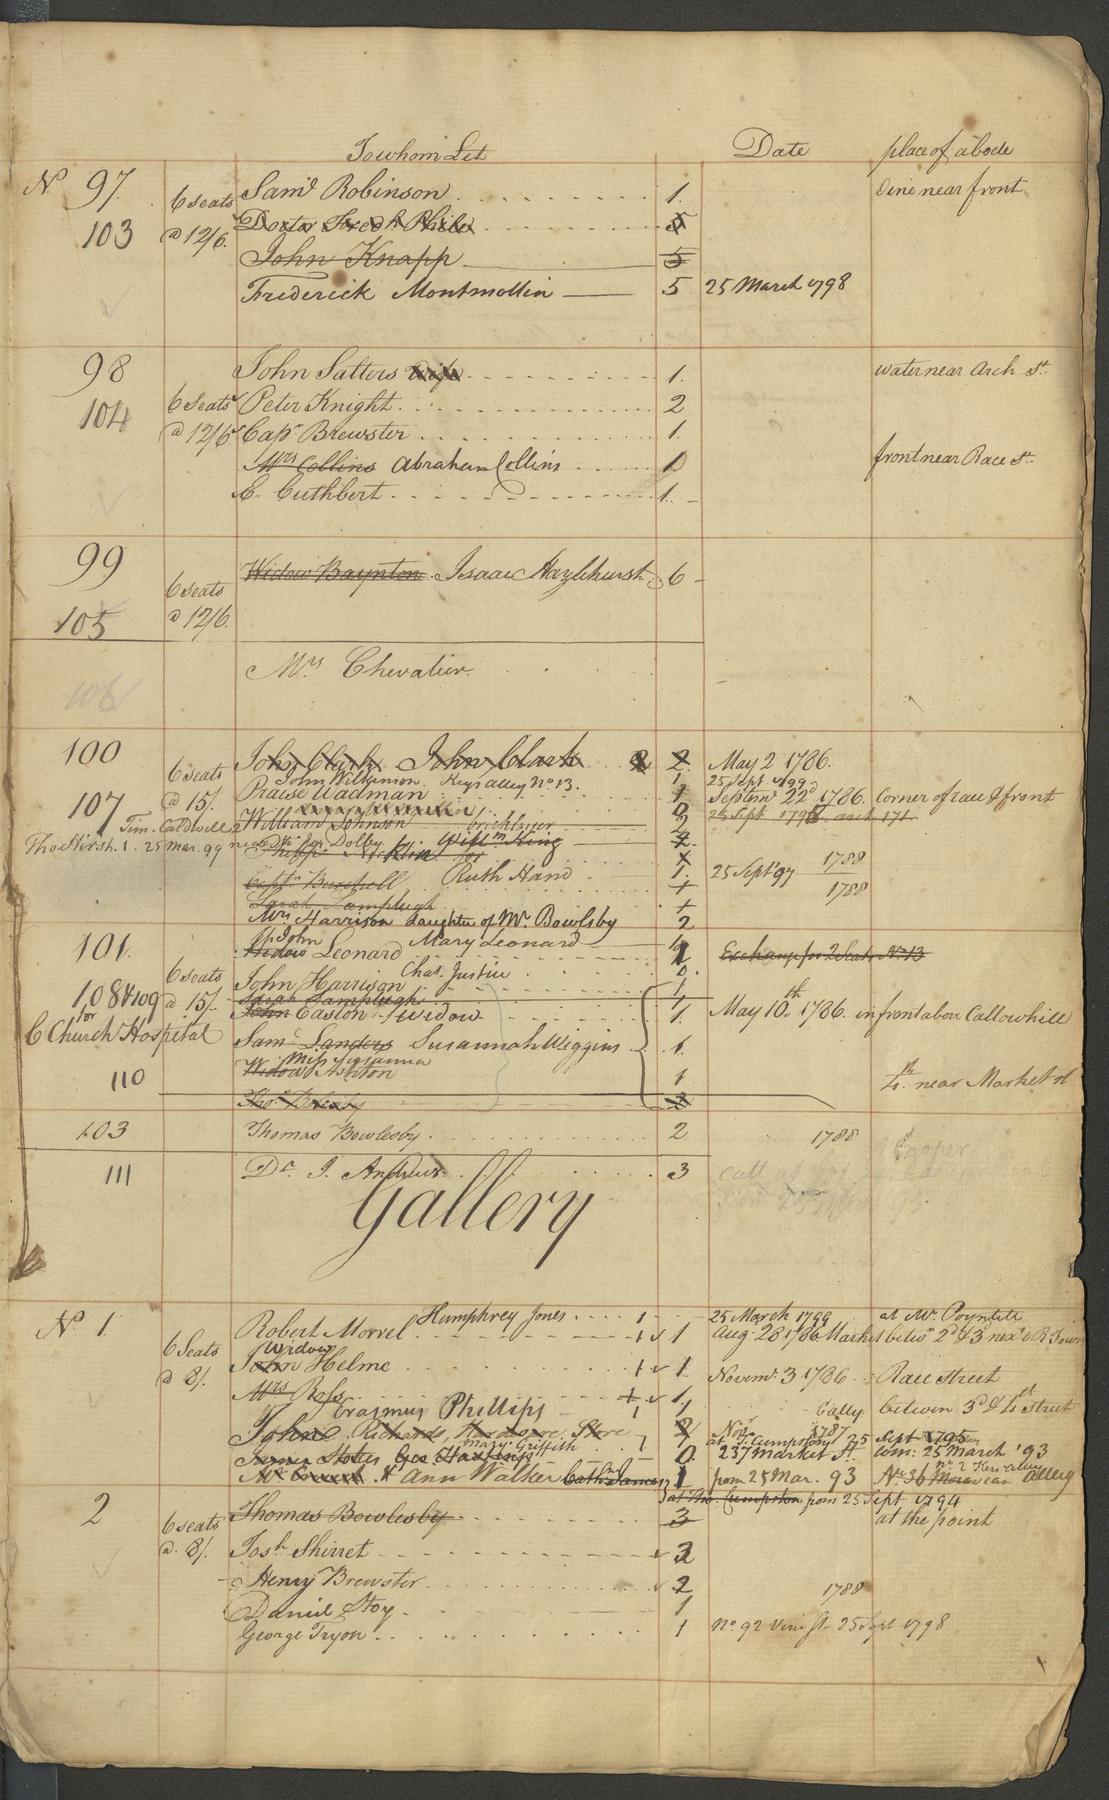 To whom Let Date place of abode
No 97. 6 seats Saml Robinson 1. Vine near front
103 a 12/6. Doctor Fredk Phile 5
John Knapp 5
Frederick Montmollin 5 25 March 1798
98 John Salters wife 1. water near Arch St.
104 6 Seats Peter Knight 2
a 12/6 Capt Brewster 1.
Mrs Collins Abraham Collins 1 front near Race St.
E. Cuthbert 1.
99 Widow Baynton Isaac Hazlehurst 6
6 seats
105 a 12/6.
Mrs Chevalier
106
100 John Clark John Clark 2 2. May 2 1786.
6 seats John Wilkinson Keys alley No 13. 1 25 Sept 1799
107 a 15/. Praise Wadman 1 Septemr 22d 1786. Corner of race & front
Tim. Caldwell 2 William Johnson bricklayer 2 25 Sept
Tho Hirsh. 1. 25 Mar. 99 Dolby Willm King 2
Ruth Hand 1. 25 Sept 97 1788
Captn Burchell 1788
Sarah Lamplugh
Mrs Harrison daughter of Mr Bowlsby 2
101. John Mary Leonard
Widow Leonard 1 Exchang for 2 Seats No 13
6 seats Chas. Justice
John Harrison 1
108 & 109 a 15/. Sarah Lamplugh 1
for John Easton Widow 1. May 10th 1786. in front above Callowhill
C Church Hospital
Saml Sanders Susannah Wiggins 1.
Miss Susanna
110 Widow Ashton 1 4th near Market st
Thos Bowlsby 2
103 Thomas Bowlesby 2 1788
111 Dr. J. Andrews 3
Gallery
No 1 Humphrey Jones 1 25 March 1799 at Mr. Poyntell
Robert Morrel 1 1 Aug. 28 1786 Market betwn 2d & 3 next
6 Seats Widow
a 8/. John Helme 1 1. Novemr 3 1786 Race Street
Mrs Ross 1.
Erasmus Phillips 1 1 Cally between 3d & 4th Street
John Richards, Hardware Store 2 Novr 1787 Sept 1795
Mary Griffith at T. Cumpstons 25
James Stokes Geo Hawkins 1 0. 237 Market St. com: 25 March '93
Ann Walker Cathn James 1 from 25 Mar. 93 No 36 Moravian Alley
at Tho. Cumpston from 25 Sept 1794
2 Thomas Bowlesby 3 at the point
6 seats
a. 8/. Josh Shirret 2
Henry Brewster 2 1788
Daniel Stoy 1
George Tryon 1 No 92 Vine St 25 Sept 1798